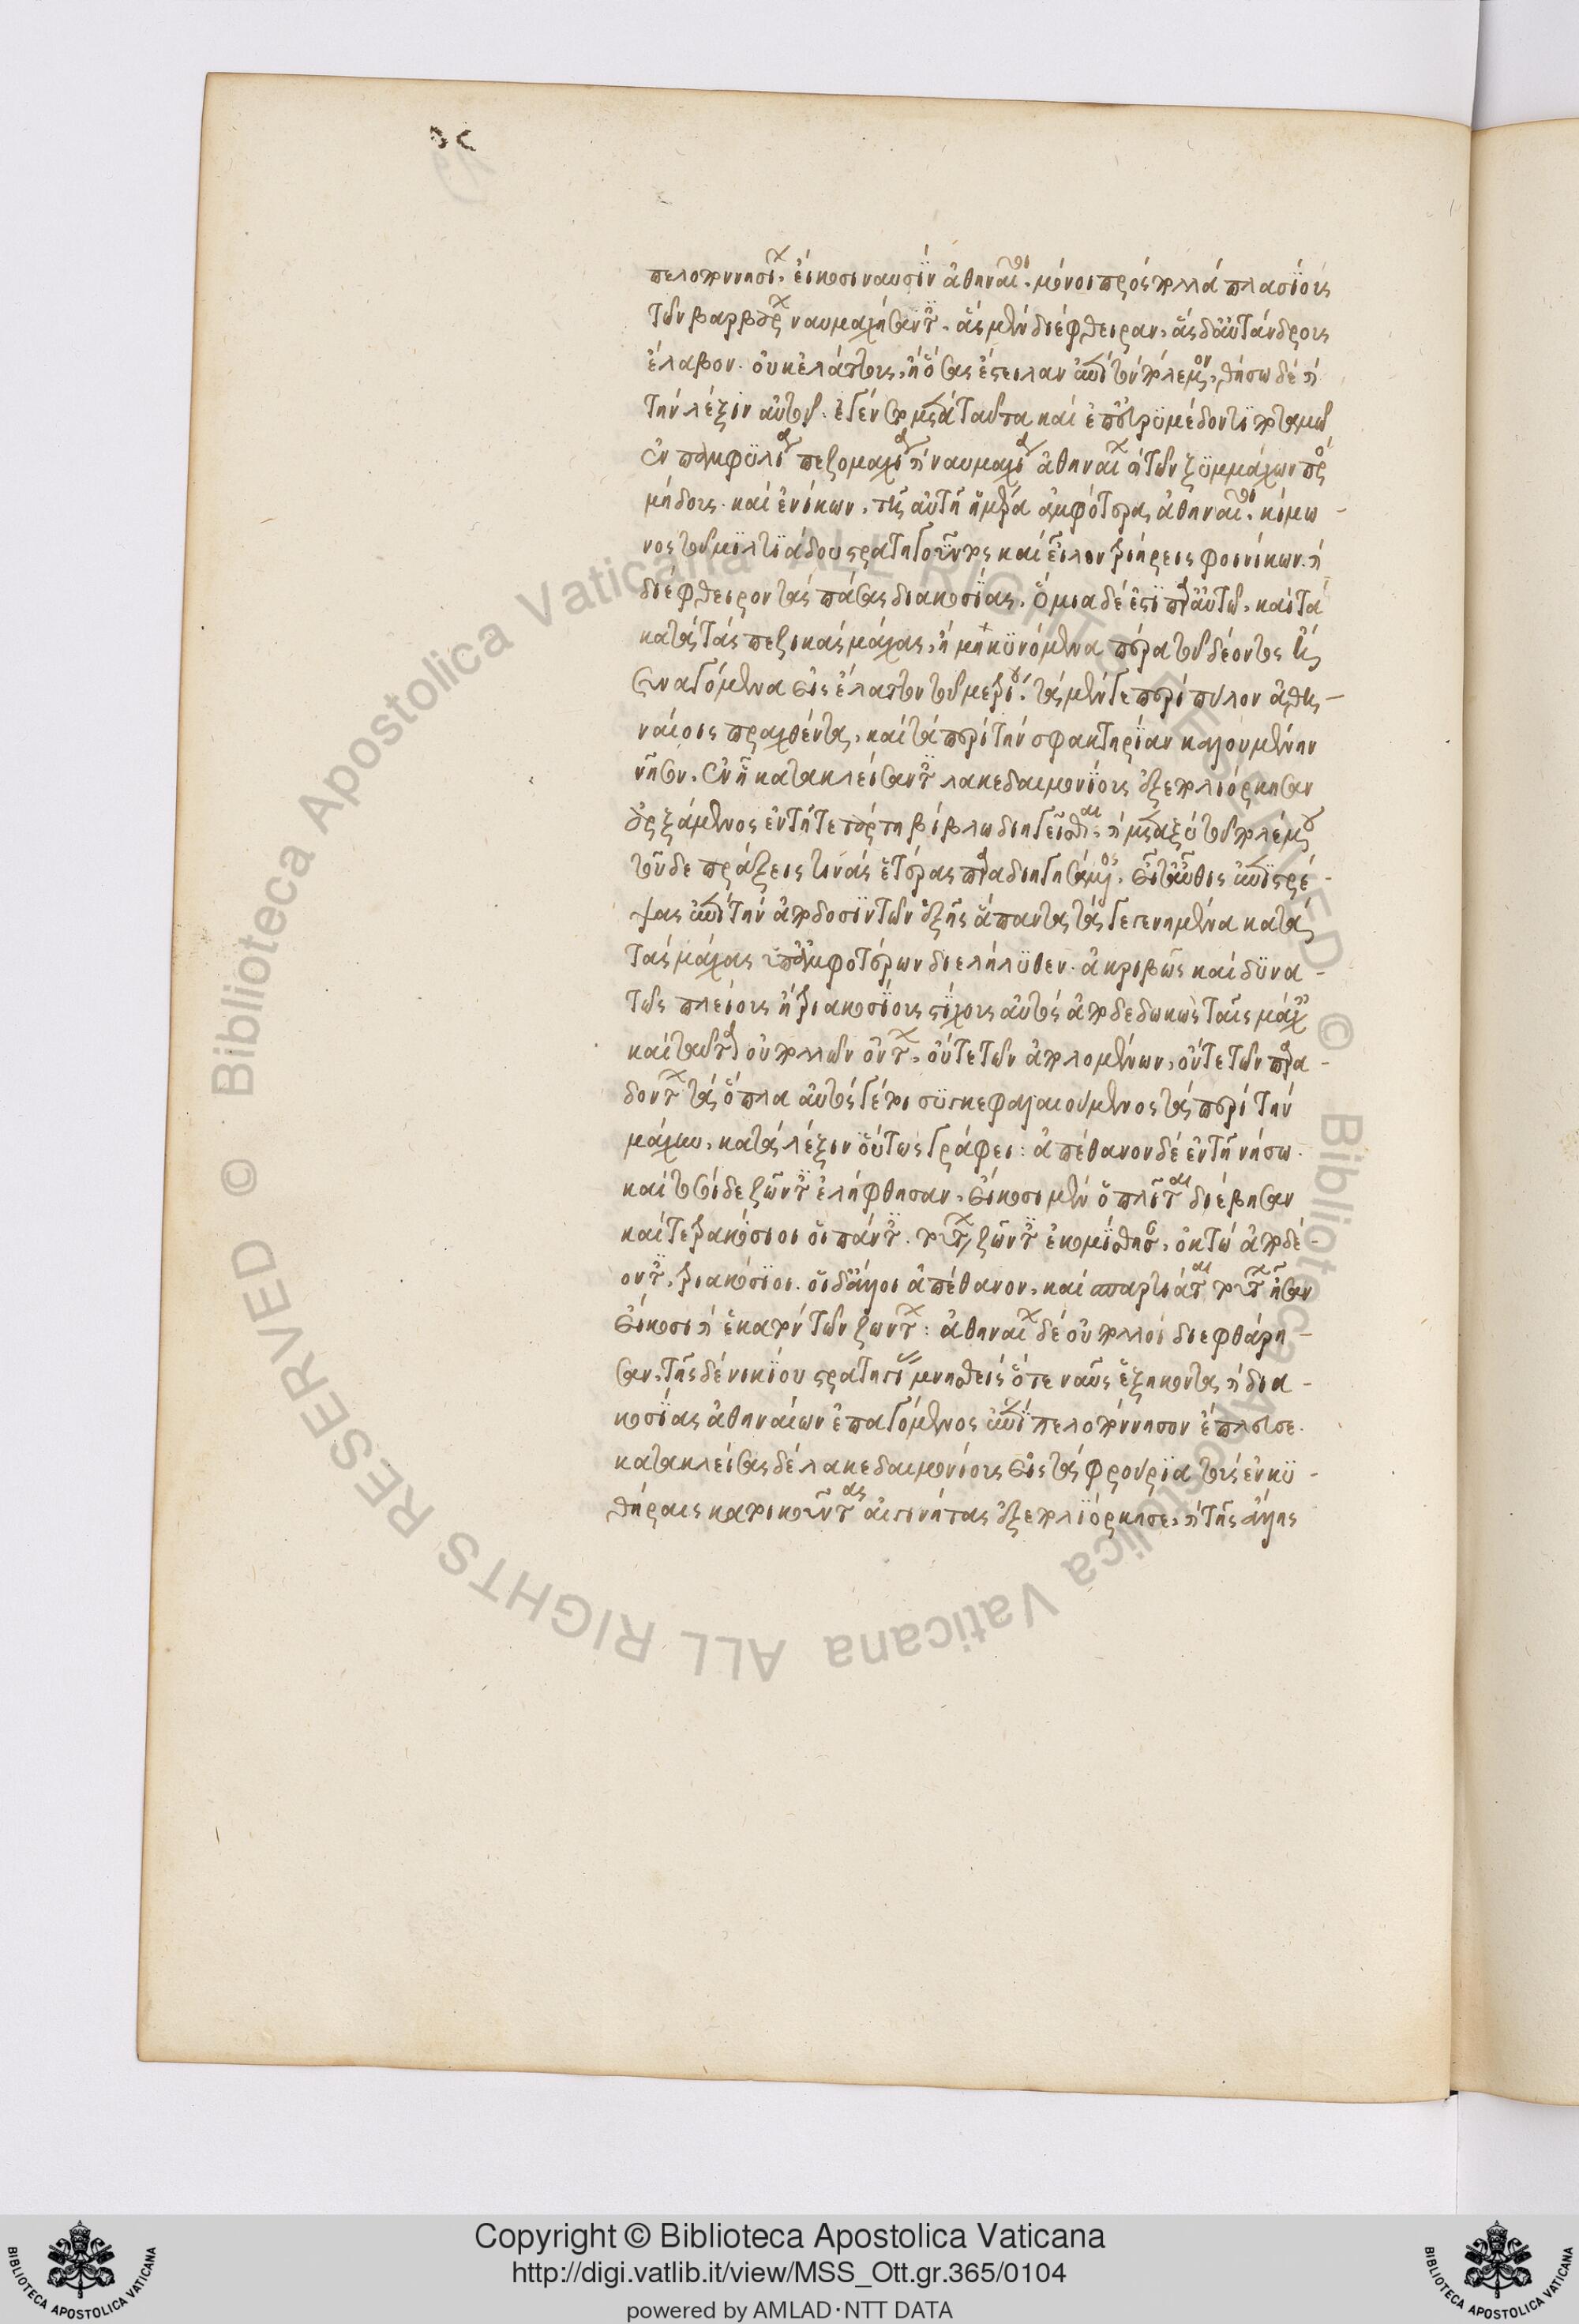 πελοποννησίων. εἴκοσι ναυσὶν ἀθηναῖοι. μόνοι πρὸς πολλαπλασίους
τῶν βαρβάρων ναυμαχήσαντες. ἃς μὲν διέφθειραν, ἃς δ' αὐτάνδρους
ἔλαβον. οὐκ ἐλάττους, ἢ ὅσας ἔστειλαν ἐπὶ τὸν πόλεμον, θήσω δὲ καὶ
τὴν λέξιν αὐτοῦ. ἐγένετο μετὰ ταῦτα καὶ ἐπ' εὐρυμέδοντι ποταμῶ
ἐν παμφυλία πεζομαχία καὶ ναυμαχία ἀθηναίων καὶ τῶν ξυμμάχων πρὸς
μήδους. καὶ ἐνίκων, τῆ αὐτῆ ἡμέρα ἀμφότερα ἀθηναῖοι. κίμω-
νος τοῦ μιλτιάδου στρατηγοῦντος καὶ εἷλον τριήρεις φοινίκων. καὶ
διέφθειρον τὰς πάσας διακοσίας. ὅμοια δέ ἐστι παρ' αὐτῶ, καὶ τὰ
κατὰ τὰς πεζικὰς μάχας, ἢ μηκυνόμενα πέρα τοῦ δέοντος ἢ
συναγόμενα εἰς ἔλαττον τοῦ μετρίου. τὰ μέν γε περὶ πύλον ἀθη-
ναίοις πραχθέντα, καὶ τὰ περὶ τὴν σφακτηρίαν καλουμένην
νῆσον. ἐν ἧ κατακλείσαντες λακεδαιμονίους ἐξεπολιόρκησαν
ἀρξάμενος ἐν τῆ τετάρτη βίβλω διηγεῖσθαι, καὶ μεταξὺ τοῦ πολέμου
τοῦδε πράξεις τινὰς ἑτέρας παραδιηγησάμενος. εἶτ' αὖθις ἐπιστρέ-
ψας ἐπὶ τὴν ἀπόδοσιν τῶν ἑξῆς ἅπαντα τὰ γεγενημένα κατὰ
τὰς μάχας ὑπ' ἀμφοτέρων διελήλυθεν. ἀκριβῶς καὶ δυνα-
τῶς πλείους ἢ τριακοσίους στίχους αὐτὸς ἀποδεδωκὼς ταῖς μάχαις
καὶ ταῦτα οὐ πολλῶν ὄντων, οὔτε τῶν ἀπολομένων, οὔτε τῶν παρα-
δόντων τὰ ὅπλα αὐτός γέ τοι συγκεφαλαιούμενος τὰ περὶ τὴν
μάχην, κατὰ λέξιν οὕτως γράφει: ἀπέθανον δὲ ἐν τῆ νήσω.
καὶ τοσοίδε ζῶντες ἐλήφθησαν, εἴκοσι μὲν ὁπλῖται διέβησαν
καὶ τετρακόσιοι οἱ πάντες. τούτων ζῶντες ἐκομίσθησαν, ὀκτὼ ἀποδέ-
οντες, τριακόσιοι. οἱ δ' ἄλλοι ἀπέθανον, καὶ σπαρτιᾶται τούτων ἦσαν
εἴκοσι καὶ ἑκατὸν τῶν ζώντων: ἀθηναίων δὲ οὐ πολλοὶ διεφθάρη-
σαν. τῆς δὲ νικίου στρατηγίας μνησθεὶς ὅτε ναῦς ἑξήκοντα καὶ δια-
κοσίας ἀθηναίων ἐπαγόμενος ἐπὶ πελοπόννησον ἔπλευσε.
κατακλείσας δὲ λακεδαιμονίους εἰς τὰ φρούρια τοὺς ἐν κυ-
θήραις κατοικοῦντας αἰγινήτας ἐξεπολιόρκησε, καὶ τῆς ἄλλης
Copyright © Biblioteca Apostolica Vaticana
http://digi.vatlib.it/view/MSS_Ott.gr.365/0104
powered by AMLAD·NTT DATA